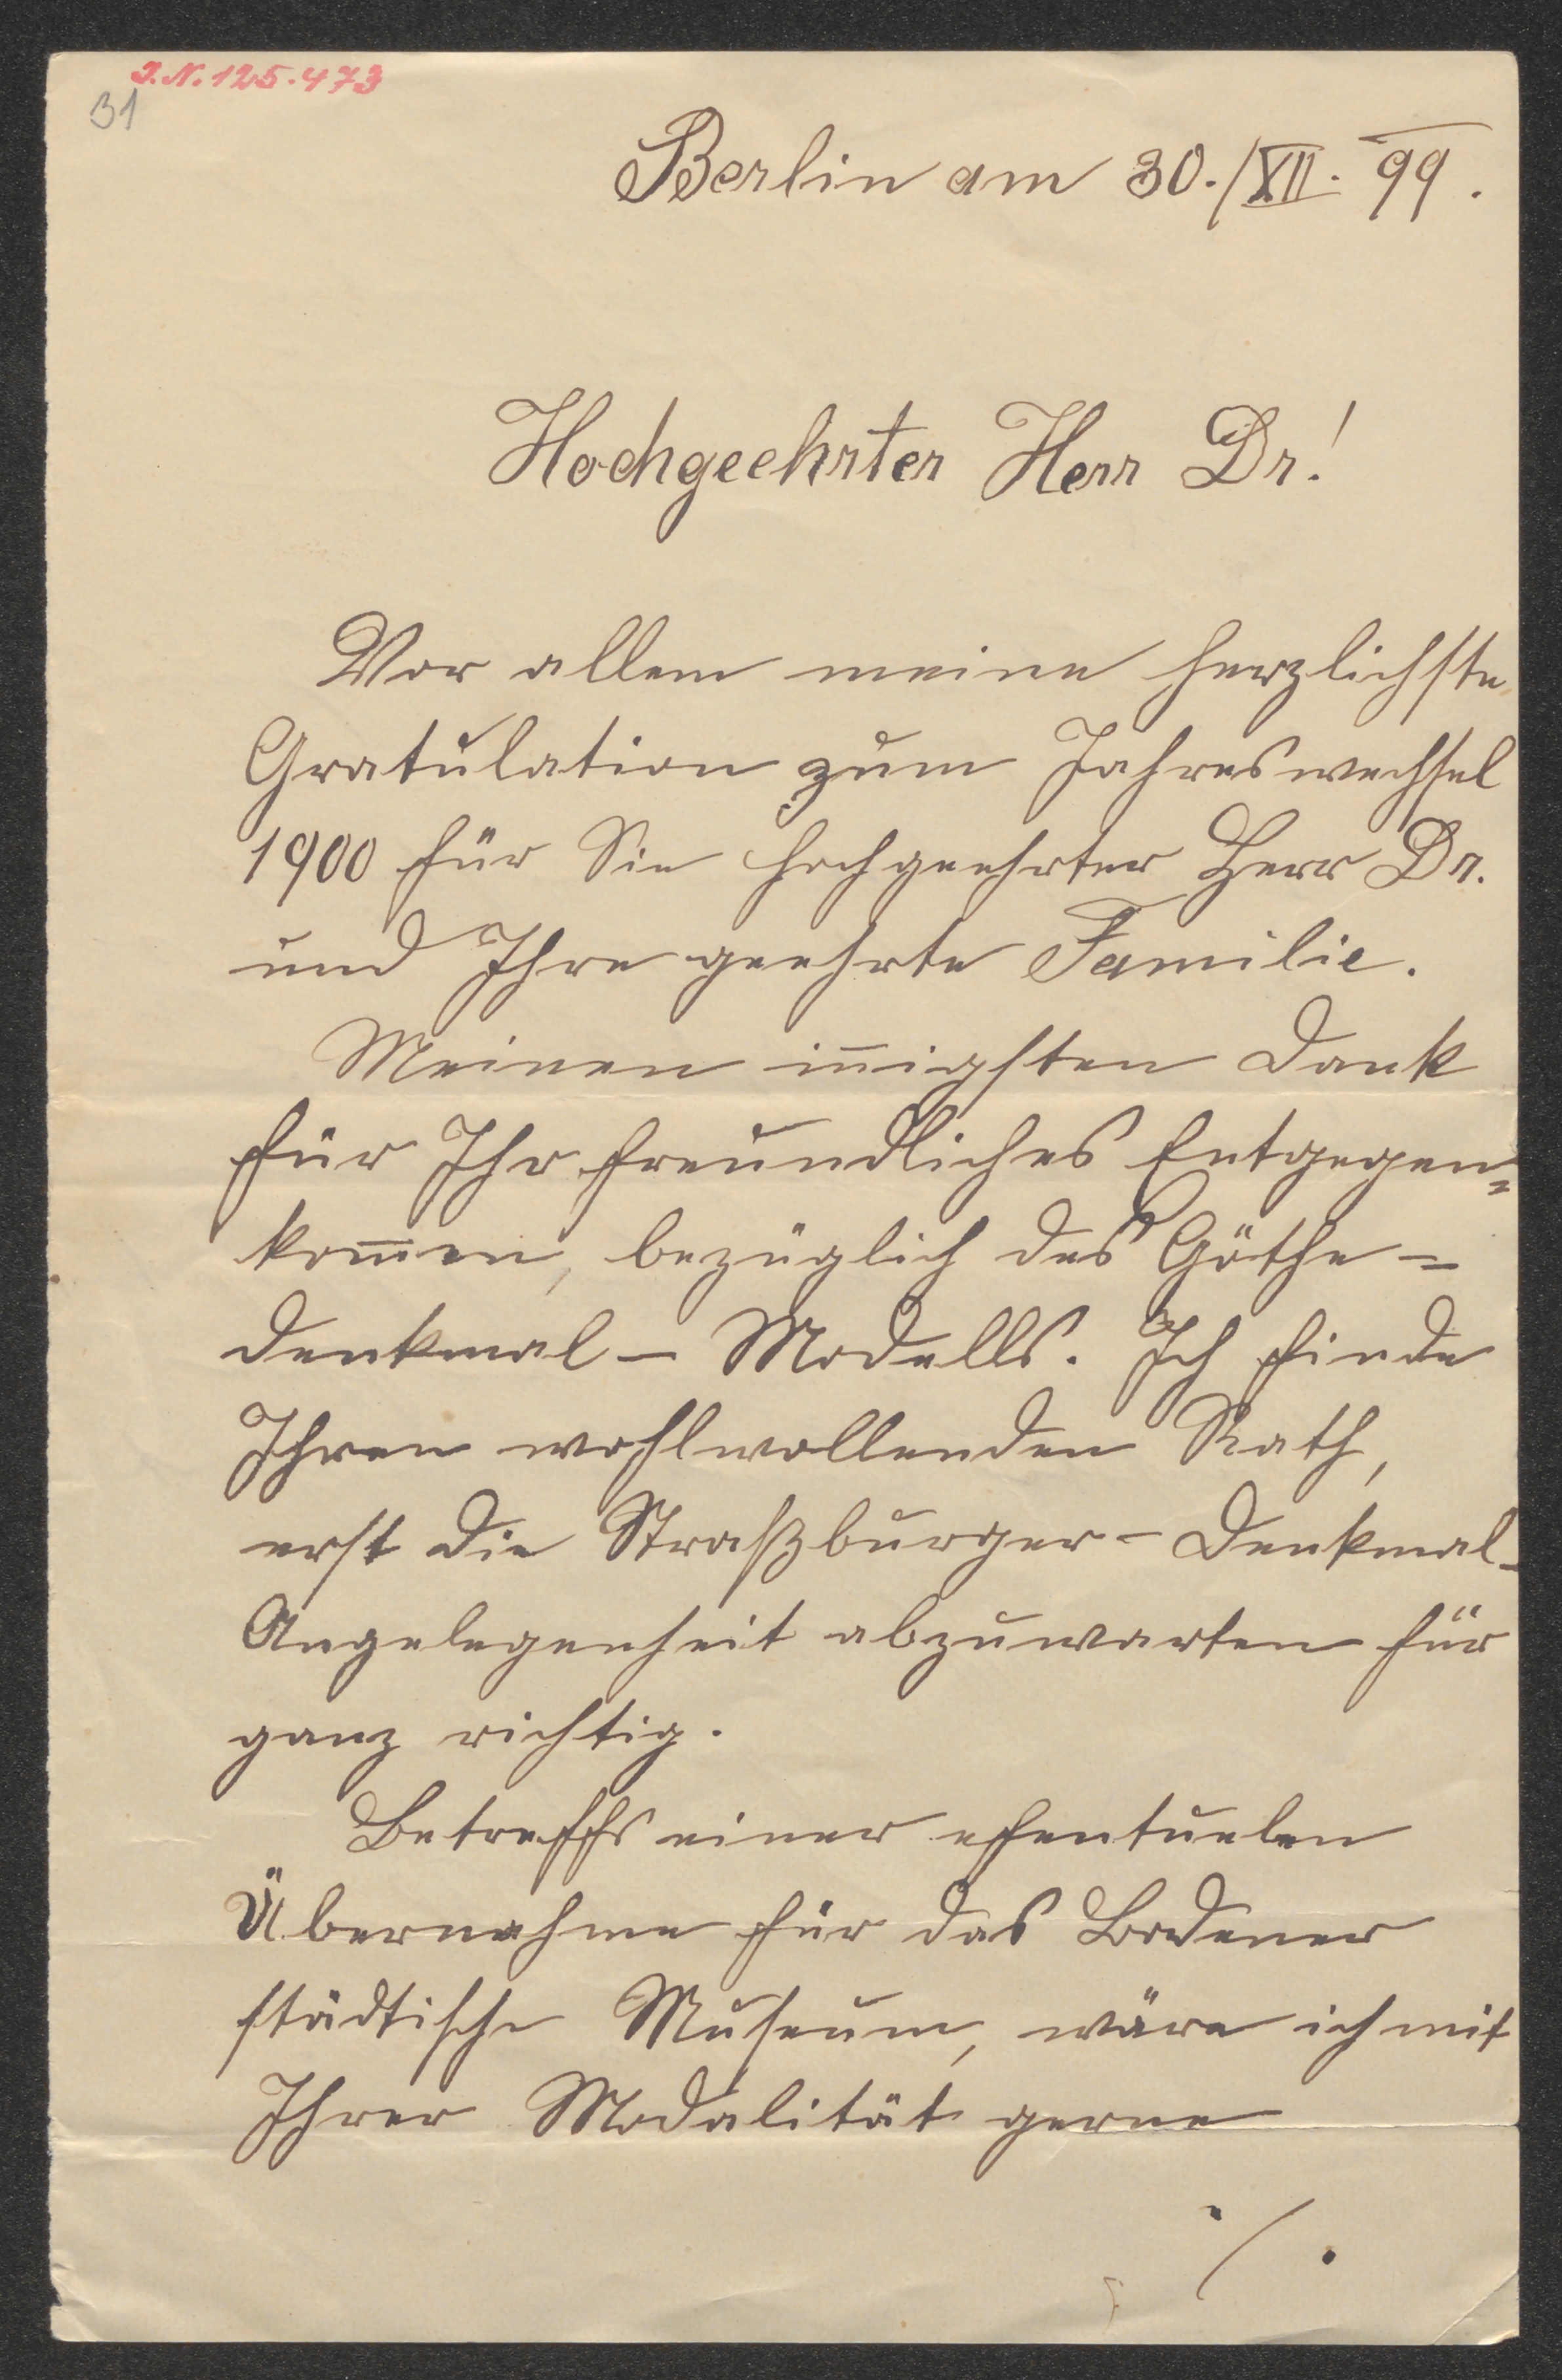 J.N. 125.473
31
Berlin am 30./XII. 99.
Hochgeehrter Herr Dr!
Vor allem meine herzlichste
Gratulation zum Jahreswechsel
1900 für Sie hochgeehrter Herr Dr.
und Ihre geehrte Familie.
Meinen iñigsten Dank
für Ihr freundliches Entgegen=
kom̄en, bezüglich des Göthe=
denkmal-Modells. Ich finde
Ihren wohlwollenden Rath,
erst die Straßburger-Denkmal-
Angelegenheit abzuwarten für
ganz richtig.
Betreffs einer efentuelen
Übernahme für das Badener
städtische Museum, wäre ich mit
Ihrer Modalität gerne
./.